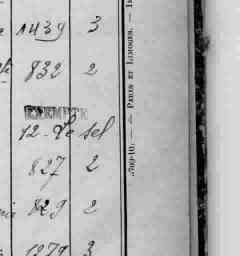 1439 3
832 2
EXEMPTE
12 - Le sel
827 2
829 2
1279 3
5709-10. — PARIS ET LIMOGES. —